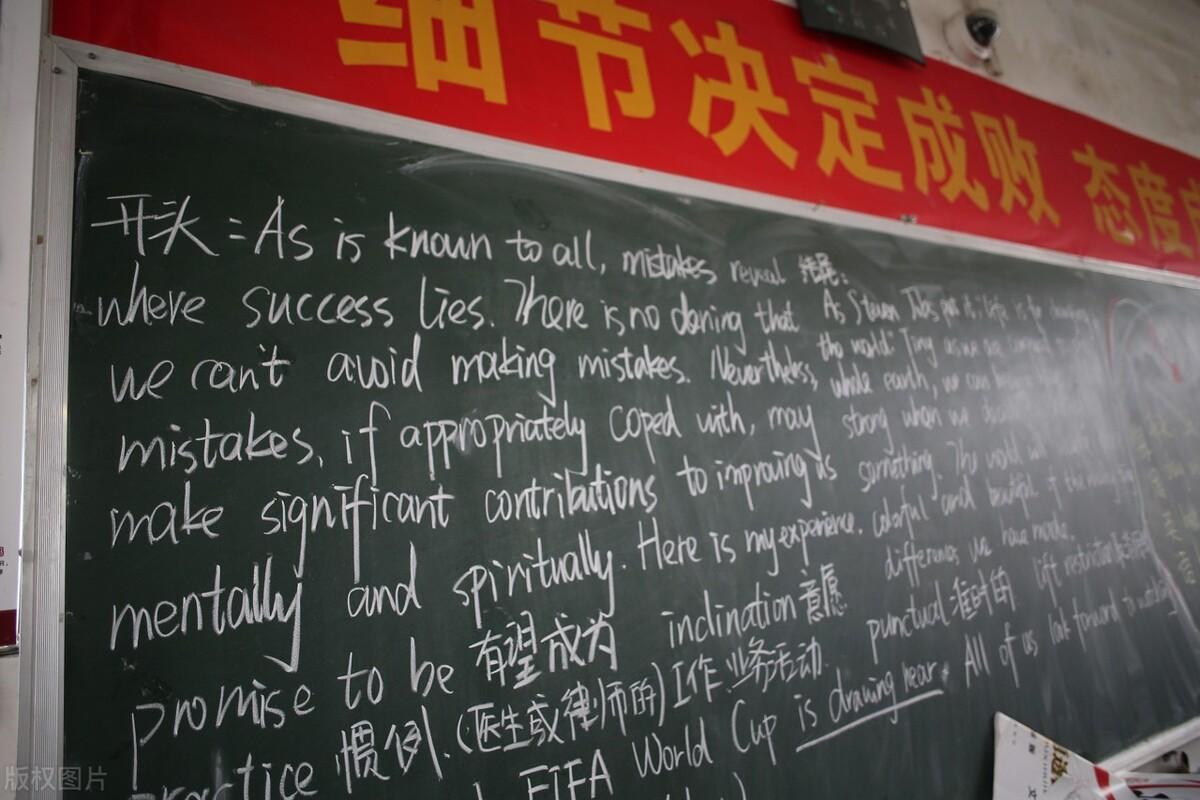 细节决定成败 态度
开头：As is known to all, mistakes reveal
where success lies. There is no dening that
we can't avoid making mistakes. Nevertheless,
mistakes, if appropriately coped with, may
make significant contributions to improving us
mentally and spiritually. Here is my experience.
结尾：
As Steven Jobs put it, life is for
the world. Tiny as we are
whole earth, we can
strong when we
something. The world will
colorful and beautiful if the
differences we have made.
promise to be 有望成为 inclination 意愿 punctual 准时的 lift restrictions
practice 惯例.(医生或律师的)工作.业务活动.
FIFA World Cup is drawing near. All of us look forward to watching
版权图片